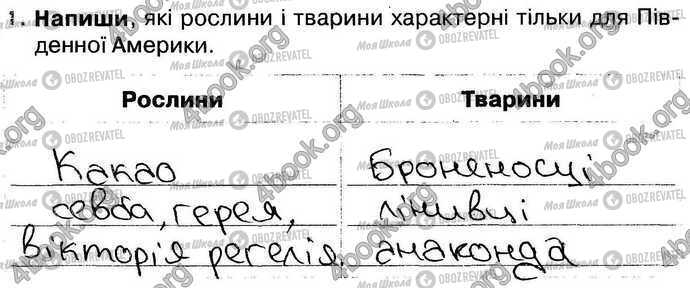 1. Напиши, які рослини і тварини характерні тільки для Пів-
денної Америки.
Рослини Тварини
Какао Броненосці
севба, герея, лінивці
вікторія регелія. анаконда